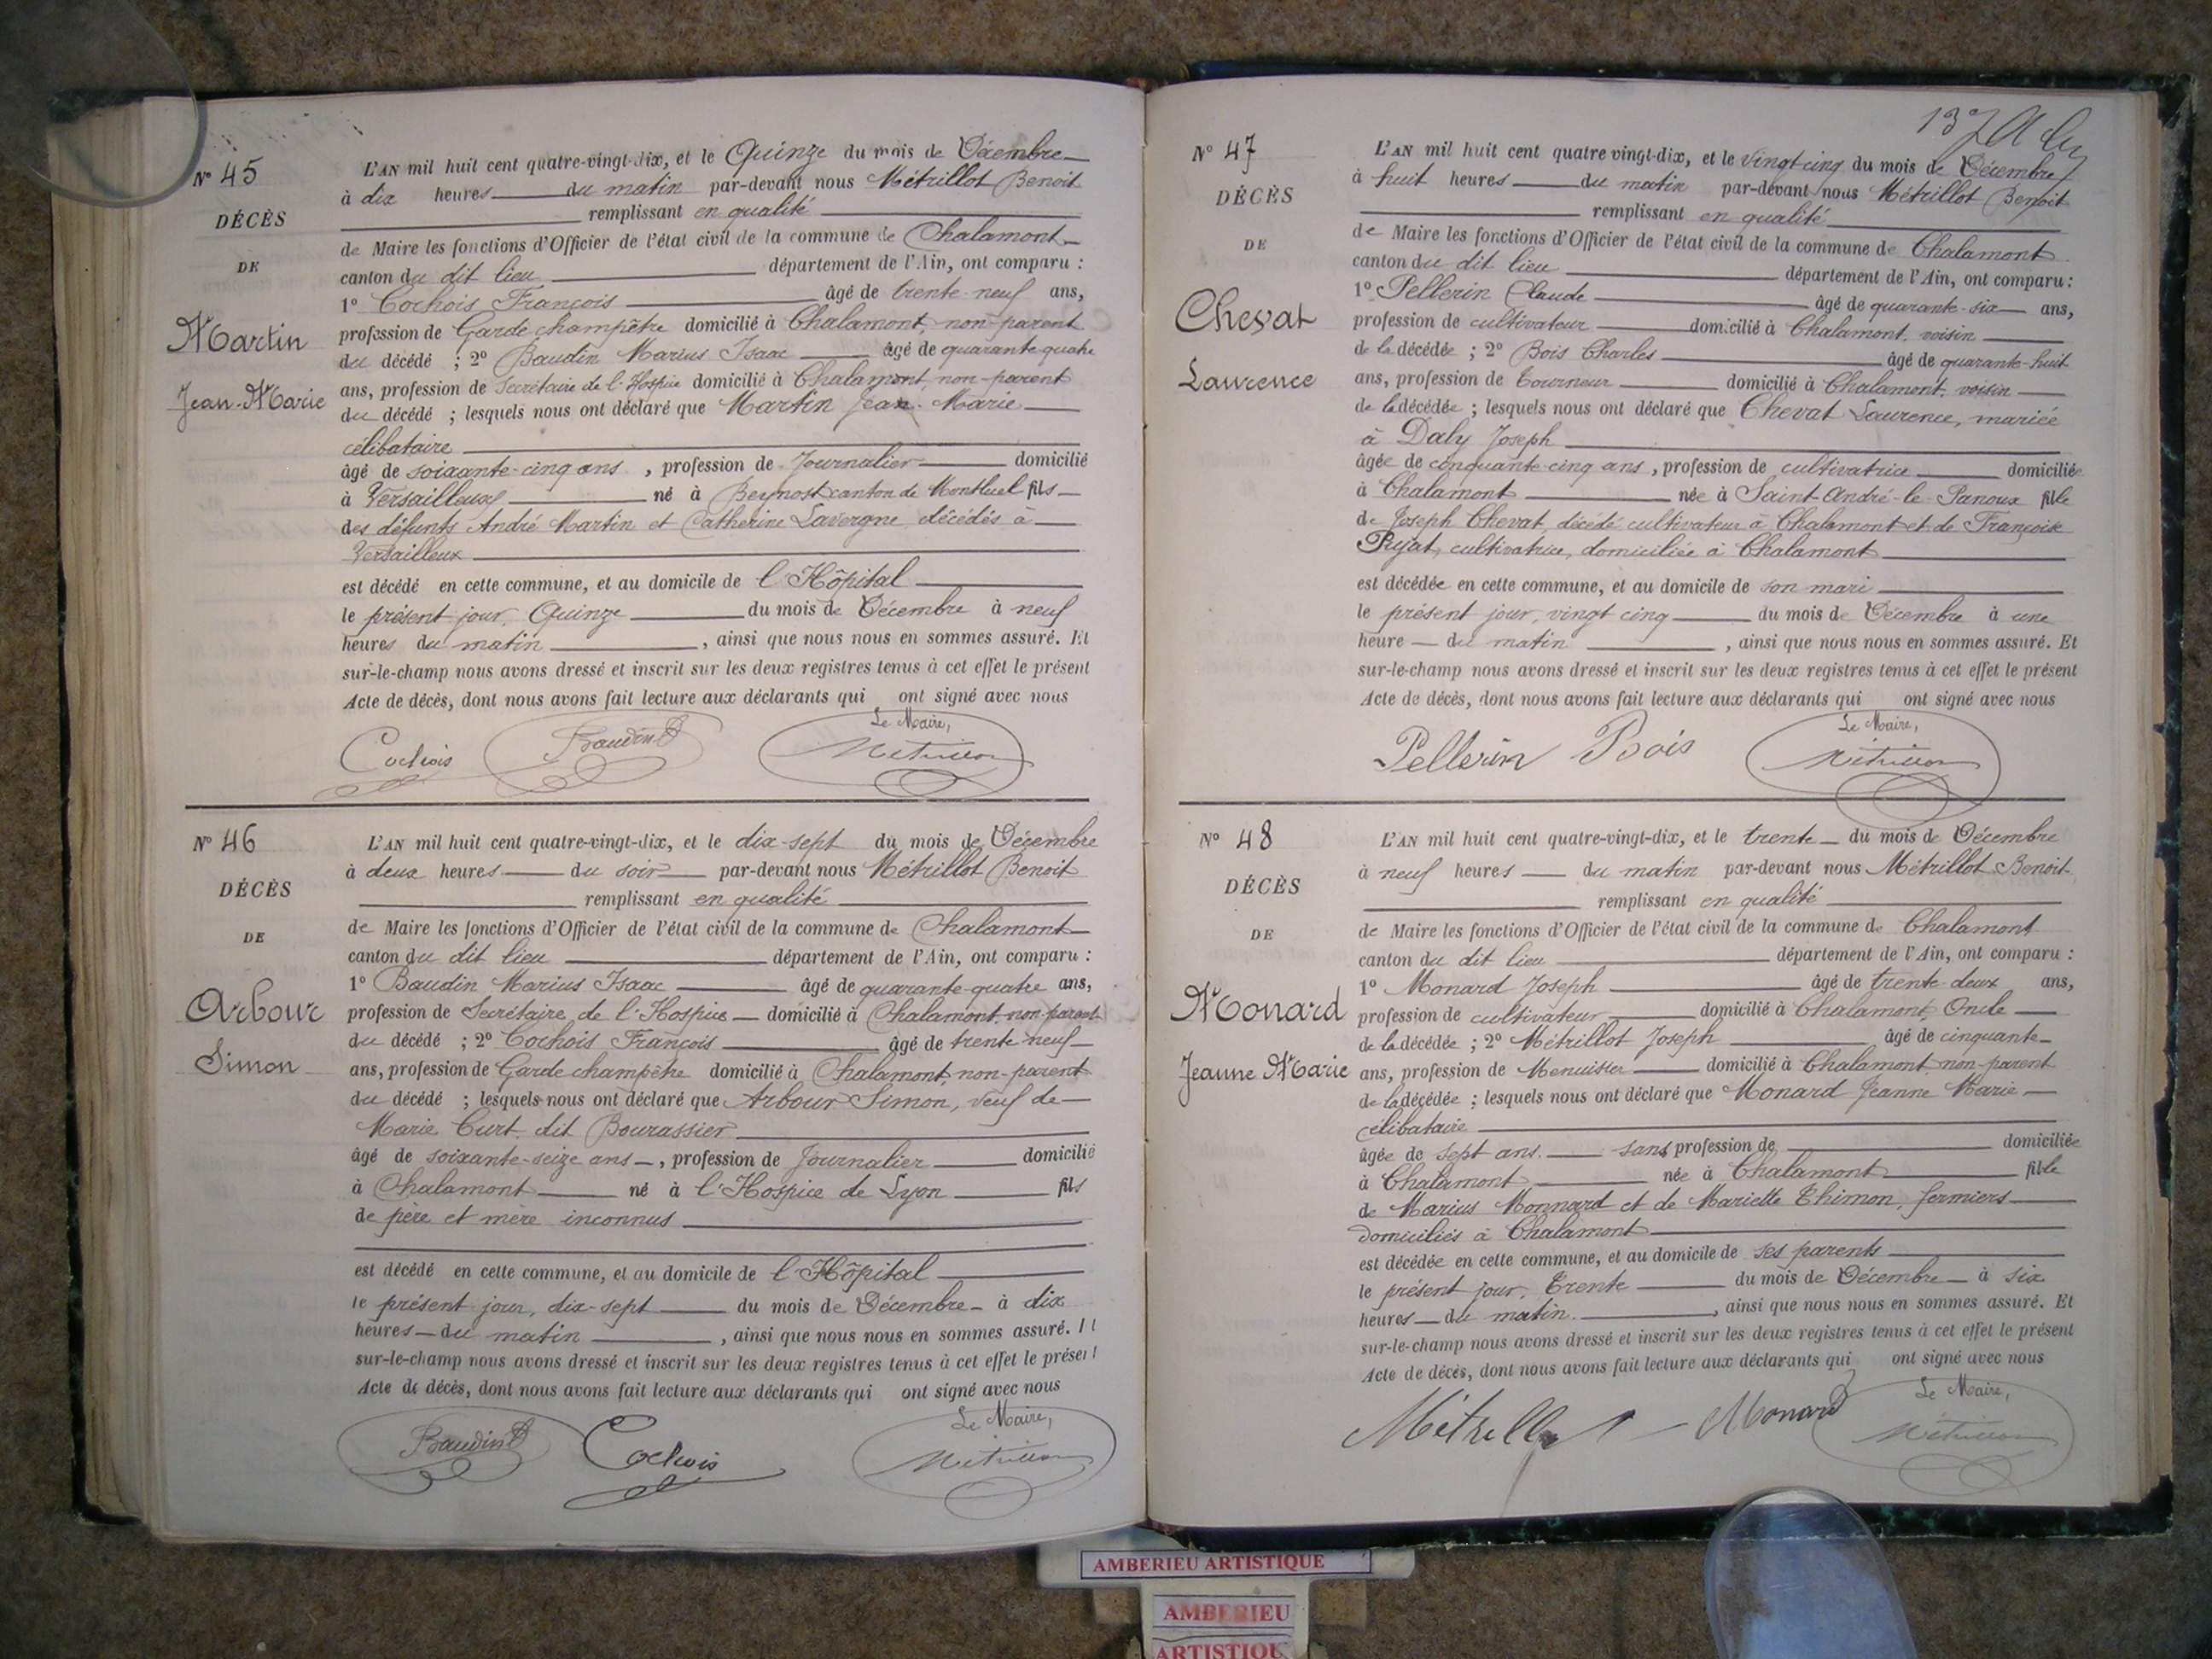 N° 45
DÉCÈS
DE
Martin
Jean-Marie
L'AN mil huit cent quatre-vingt-dix, et le Quinze du mois de Décembre
à dix heures du matin par-devant nous Métrillot Benoit
remplissant en qualité
de Maire les fonctions d'Officier de l'état civil de la commune de Chalamont
canton du dit lieu département de l'Ain, ont comparu :
1° Cochois François âgé de trente-neuf ans,
profession de Garde champêtre domicilié à Chalamont, non-parent
du décédé ; 2° Baudin Marius Isaac âgé de quarante-quatre
ans, profession de Secrétaire de l'Hospice domicilié à Chalamont, non-parent
du décédé ; lesquels nous ont déclaré que Martin Jean-Marie
célibataire
âgé de soixante-cinq ans, profession de Journalier domicilié
à Versailleux né à Beynost canton de Montluel fils
des défunts André Martin et Catherine Lavergne, décédés à
Versailleux
est décédé en cette commune, et au domicile de l'Hôpital
le présent jour, Quinze du mois de Décembre à neuf
heures du matin, ainsi que nous nous en sommes assuré. Et
sur-le-champ nous avons dressé et inscrit sur les deux registres tenus à cet effet le présent
Acte de décès, dont nous avons fait lecture aux déclarants qui ont signé avec nous
Le Maire,
Cochois Baudin Métrillot
N° 46
DÉCÈS
DE
Arbour
Simon
L'AN mil huit cent quatre-vingt-dix, et le dix-sept du mois de Décembre
à deux heures du soir par-devant nous Métrillot Benoit
remplissant en qualité
de Maire les fonctions d'Officier de l'état civil de la commune de Chalamont
canton du dit lieu département de l'Ain, ont comparu :
1° Baudin Marius Isaac âgé de quarante-quatre ans,
profession de Secrétaire de l'Hospice domicilié à Chalamont, non-parent
du décédé ; 2° Cochois François âgé de trente neuf
ans, profession de Garde champêtre domicilié à Chalamont, non-parent
du décédé ; lesquels nous ont déclaré que Arbour Simon, veuf de
Marie Curt dit Bourassier
âgé de soixante-seize ans, profession de Journalier domicilié
à Chalamont né à l'Hospice de Lyon fils
de père et mère inconnus
est décédé en cette commune, et au domicile de l'Hôpital
le présent jour, dix-sept du mois de Décembre à dix
heures du matin, ainsi que nous nous en sommes assuré. Et
sur-le-champ nous avons dressé et inscrit sur les deux registres tenus à cet effet le présent
Acte de décès, dont nous avons fait lecture aux déclarants qui ont signé avec nous
Le Maire,
Baudin Cochois Métrillot
137
N° 47
DÉCÈS
DE
Chevat
Laurence
L'AN mil huit cent quatre vingt-dix, et le vingt-cinq du mois de Décembre
à huit heures du matin par-devant nous Métrillot Benoit
remplissant en qualité
de Maire les fonctions d'Officier de l'état civil de la commune de Chalamont
canton du dit lieu département de l'Ain, ont comparu :
1° Pellerin Claude âgé de quarante-six ans,
profession de cultivateur domicilié à Chalamont, voisin
de la décédée ; 2° Bois Charles âgé de quarante-huit
ans, profession de Tourneur domicilié à Chalamont, voisin
de la décédée ; lesquels nous ont déclaré que Chevat Laurence, mariée
à Daly Joseph
âgée de cinquante-cinq ans, profession de cultivatrice domiciliée
à Chalamont née à Saint-André-le-Panoux fille
de Joseph Chevat, décédé cultivateur à Chalamont et de Françoise
Pujat, cultivatrice, domiciliée à Chalamont
est décédée en cette commune, et au domicile de son mari
le présent jour, vingt cinq du mois de Décembre à une
heure du matin, ainsi que nous nous en sommes assuré. Et
sur-le-champ nous avons dressé et inscrit sur les deux registres tenus à cet effet le présent
Acte de décès, dont nous avons fait lecture aux déclarants qui ont signé avec nous
Le Maire,
Pellerin Bois Métrillot
N° 48
DÉCÈS
DE
Monard
Jeanne Marie
L'AN mil huit cent quatre-vingt-dix, et le trente du mois de Décembre
à neuf heures du matin par-devant nous Métrillot Benoit
remplissant en qualité
de Maire les fonctions d'Officier de l'état civil de la commune de Chalamont
canton du dit lieu département de l'Ain, ont comparu :
1° Monard Joseph âgé de trente-deux ans,
profession de cultivateur domicilié à Chalamont, Oncle
de la décédée ; 2° Métrillot Joseph âgé de cinquante
ans, profession de Menuisier domicilié à Chalamont, non-parent
de la décédée ; lesquels nous ont déclaré que Monard Jeanne Marie
célibataire
âgée de sept ans. sans profession de domiciliée
à Chalamont née à Chalamont fille
de Marius Monnard et de Mariette Thimon, fermiers
domiciliés à Chalamont
est décédée en cette commune, et au domicile de ses parents
le présent jour, Trente du mois de Décembre à six
heures du matin., ainsi que nous nous en sommes assuré. Et
sur-le-champ nous avons dressé et inscrit sur les deux registres tenus à cet effet le présent
Acte de décès, dont nous avons fait lecture aux déclarants qui ont signé avec nous
Le Maire,
Métrillot Monard Métrillot
AMBERIEU ARTISTIQUE
AMBERIEU
ARTISTIQUE